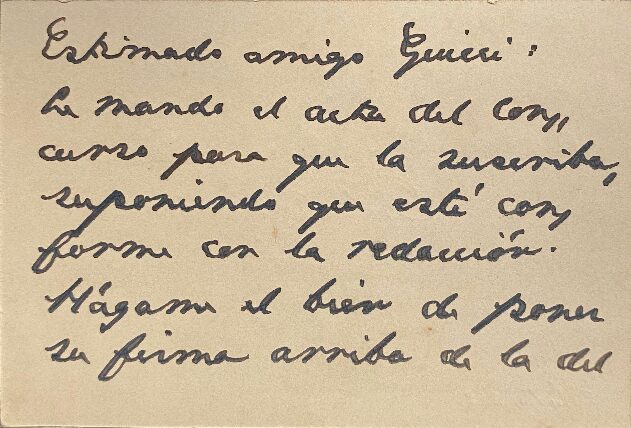 Estimado amigo Guicci:
Le mando el acta del Con„
curso para que la suscriba,
suponiendo que esté con„
forme con la redacción.
Hágame el bien de poner
su firma arriba de la del